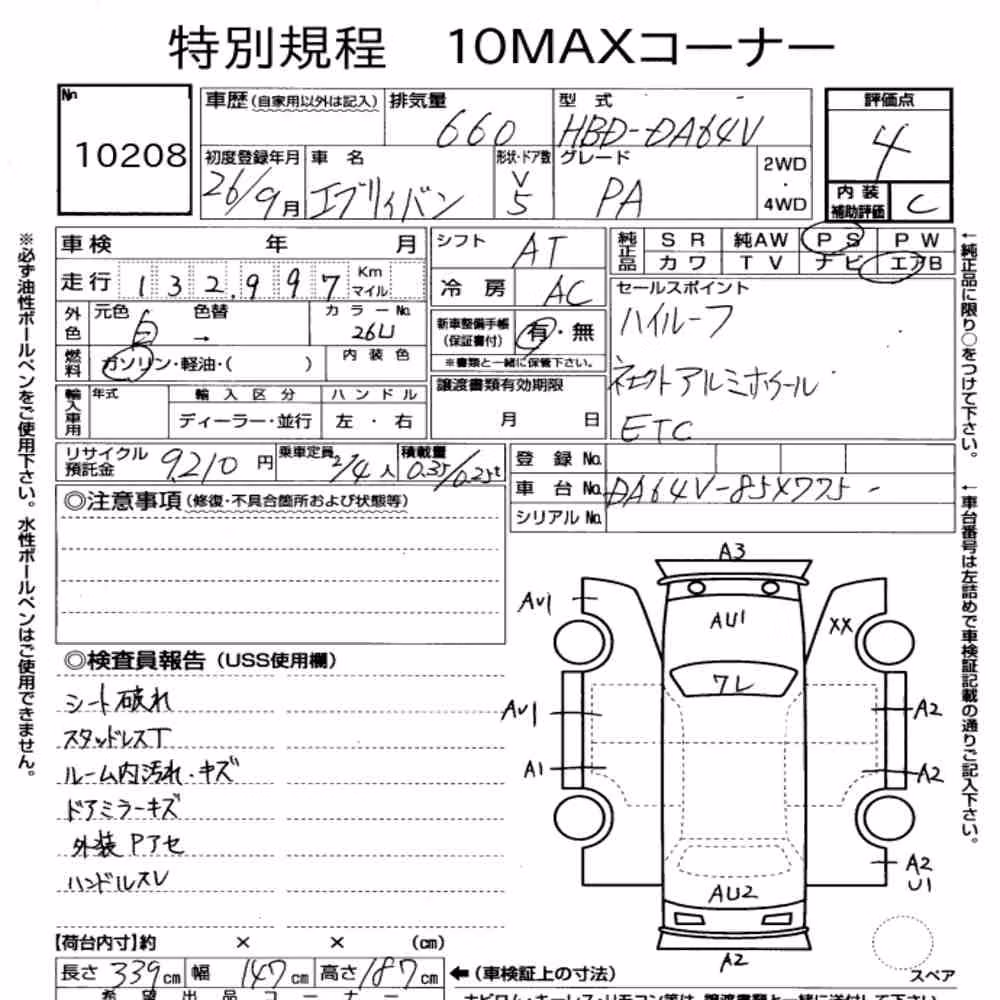 特別規程 10MAXコーナー
No.
10208
車歴(自家用以外は記入)
排気量
660
型式
HBD-DA64V
評価点
4
初度登録年月
26/9月
車名
エブリィバン
形状・ドア数
V
5
グレード
PA
2WD
・
4WD
内装
補助評価
C
車検 年 月
シフト
AT
純正品
SR 純AW PS PW
カワ TV ナビ エアB
走行
132,997
Km
マイル
冷房
AC
セールスポイント
ハイルーフ
外色
元色
白
色替
→
カラーNo.
26U
新車整備手帳
(保証書付)
有・無
※書類と一緒に保管下さい。
燃料
ガソリン・軽油・( )
内装色
譲渡書類有効期限
月 日
ネオクトアルミホイール
輸入車用
年式
輸入区分
ハンドル
ディーラー・並行
左・右
ETC
リサイクル
預託金
9210円
乗車定員
2/4人
積載量
0.35/0.25t
登録No.
車台No.
DA64V-85X775-
シリアルNo.
◎注意事項(修復・不具合箇所および状態等)
◎検査員報告(USS使用欄)
シート破れ
スタッドレスT
ルーム内汚れ・キズ
ドアミラーキズ
外装Pアセ
ハンドルスレ
A3
AU1
AU1
XX
フレ
AU1
A2
A1
A2
A2
U1
AU2
A2
スペア
【荷台内寸】約 × × (cm)
長さ 339cm 幅 147cm 高さ 187cm
←(車検証上の寸法)
希望出品コーナー
※必ず油性ボールペンをご使用下さい。水性ボールペンはご使用できません。
←純正品に限り○をつけて下さい。
←車台番号は左詰めで車検証記載の通りご記入下さい。